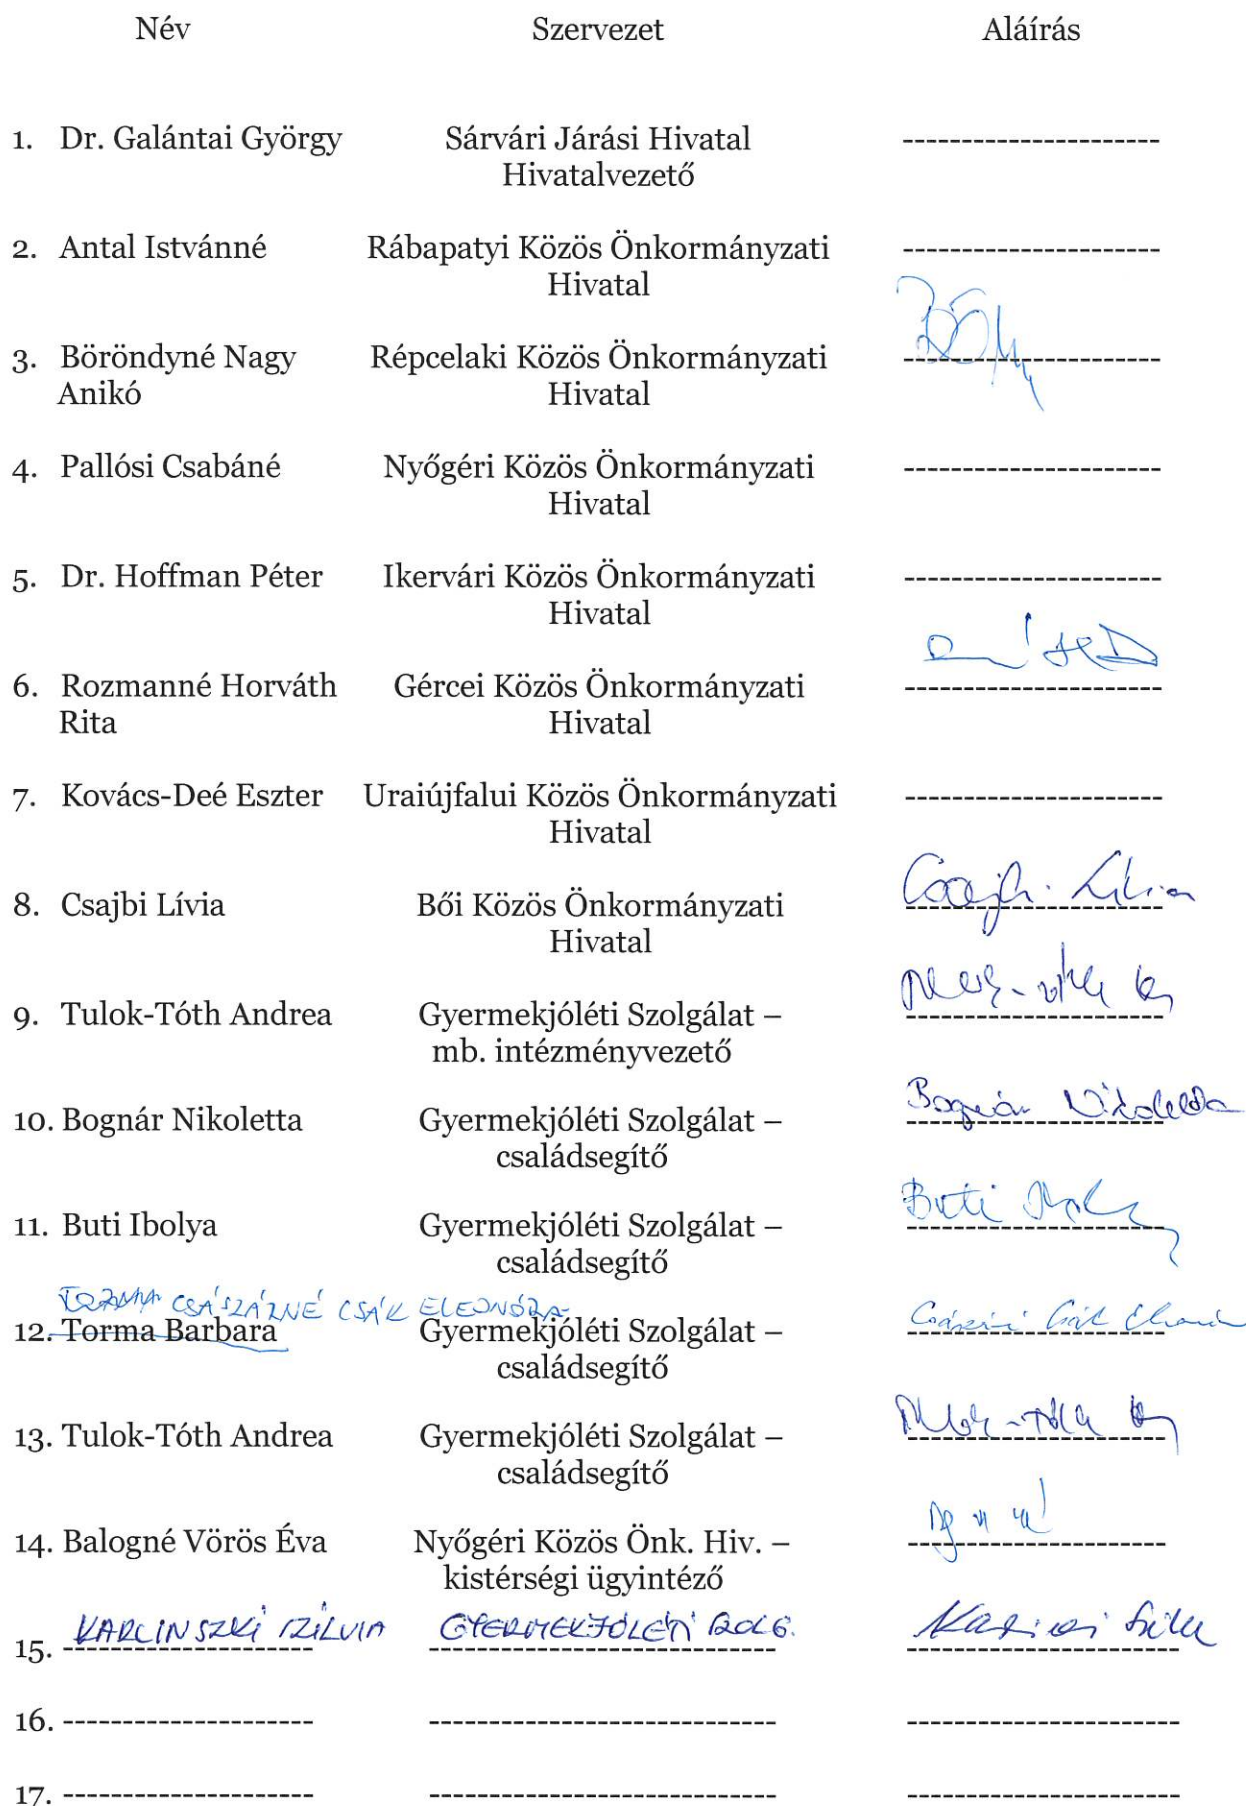 Név Szervezet Aláírás
1. Dr. Galántai György Sárvári Járási Hivatal ----------------------
Hivatalvezető
2. Antal Istvánné Rábapatyi Közös Önkormányzati ----------------------
Hivatal
3. Böröndyné Nagy Répcelaki Közös Önkormányzati ----------------------
Anikó Hivatal
4. Pallósi Csabáné Nyőgéri Közös Önkormányzati ----------------------
Hivatal
5. Dr. Hoffman Péter Ikervári Közös Önkormányzati ----------------------
Hivatal
6. Rozmanné Horváth Gércei Közös Önkormányzati ----------------------
Rita Hivatal
7. Kovács-Deé Eszter Uraiújfalui Közös Önkormányzati ----------------------
Hivatal
8. Csajbi Lívia Bői Közös Önkormányzati Csajbi Lívia
Hivatal
9. Tulok-Tóth Andrea Gyermekjóléti Szolgálat – ----------------------
mb. intézményvezető
10. Bognár Nikoletta Gyermekjóléti Szolgálat – Bognár Nikoletta
családsegítő
11. Buti Ibolya Gyermekjóléti Szolgálat – Buti Ibolya
családsegítő
CSÁSZÁRNÉ CSÁK ELEONÓRA
12. Torma Barbara Gyermekjóléti Szolgálat – ----------------------
családsegítő
13. Tulok-Tóth Andrea Gyermekjóléti Szolgálat – ----------------------
családsegítő
14. Balogné Vörös Éva Nyőgéri Közös Önk. Hiv. – ----------------------
kistérségi ügyintéző
15. KARLINSZKI SZILVIA GYERMEKJÓLÉTI SZOLG.
16. --------------------- ----------------------------- -----------------------
17. --------------------- ----------------------------- -----------------------